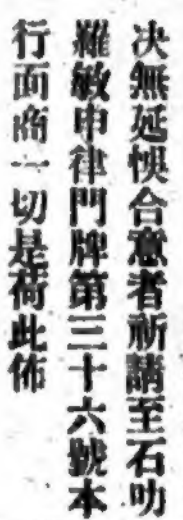 決無延悞合意者祈請至石叻
羅敏申律門牌第三十六號本
行面商一切是荷此佈